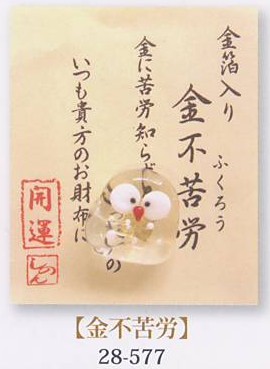 金箔入り
ふくろう
金不苦労
金に苦労知らず
の
いつも貴方のお財布に
開運
しのん
【金不苦労】
28-577